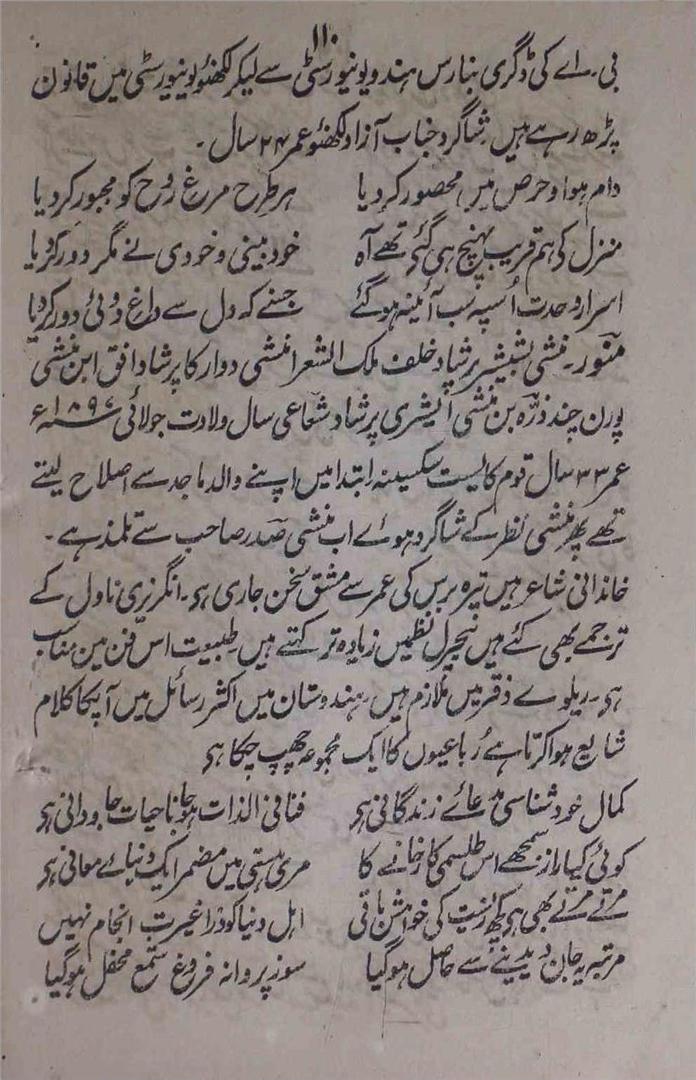 ۱۱۰
بی۔اے کی ڈگری بنارس ہندو یونیورسٹی سے لیکر لکھنؤ یونیورسٹی میں قانون
پڑھ رہے ہیں۔ شاگرد جناب آزاد لکھنؤ عمر ۲۴ سال۔
دام ہوا و حرص میں محصور کردیا ہر طرح مرغ روح کو مجبور کردیا
منزل کی ہم قریب پہنچ ہی گئی تھے آہ خود بینی و خودی نے مگر دور کردیا
اسرار وحدت اُسپہ سب آئینہ ہوگئے جسنے کہ دل سے داغ دوئی دور کردیا
منور۔ منشی بشیشر پرشاد خلف ملک الشعرا منشی دوارکا پرشاد افق ابن منشی
پورن چند ذرّہ بن منشی ایشری پرشاد شعاعی سال ولادت جولائی ۱۸۹۷ء
عمر ۳۳ سال قوم کایست سکسینہ ابتدا میں اپنے والد ماجد سے اصلاح لیتے
تھے پھر منشی نظر کے شاگرد ہوئے اب منشی صدر صاحب سے تلمذ ہے۔
خاندانی شاعر ہیں تیرہ برس کی عمر سے مشق سخن جاری ہی۔ انگریزی ناول کے
ترجمے بھی کئے ہیں نیچرل نظمیں زیادہ تر کہتے ہیں طبیعت اس فن مین مناسب
ہی۔ ریلوے دفتر میں ملازم ہیں۔ ہندوستان میں اکثر رسائل میں آپکا کلام
شایع ہوا کرتا ہے رُباعیوں کا ایک مجموعہ چھپ چکا ہی
کمال خود شناسی مدعائے زندگانی ہی فنا فی الذات ہوجانا حیات جاودانی ہی
کوئی کیا راز سمجھے اس طلسمی کارخانے کا مری ہستی میں مضمر ایک دنیائے معانی ہی
مرتے مرتے بھی ہی کچھ زیست کی خواہش باقی اہل دنیا کو ذرا غیرت انجام نہیں
مرتبہ یہ جان دیدینے سے حاصل ہوگیا سوز پروانہ فروغ شمع محفل ہوگیا